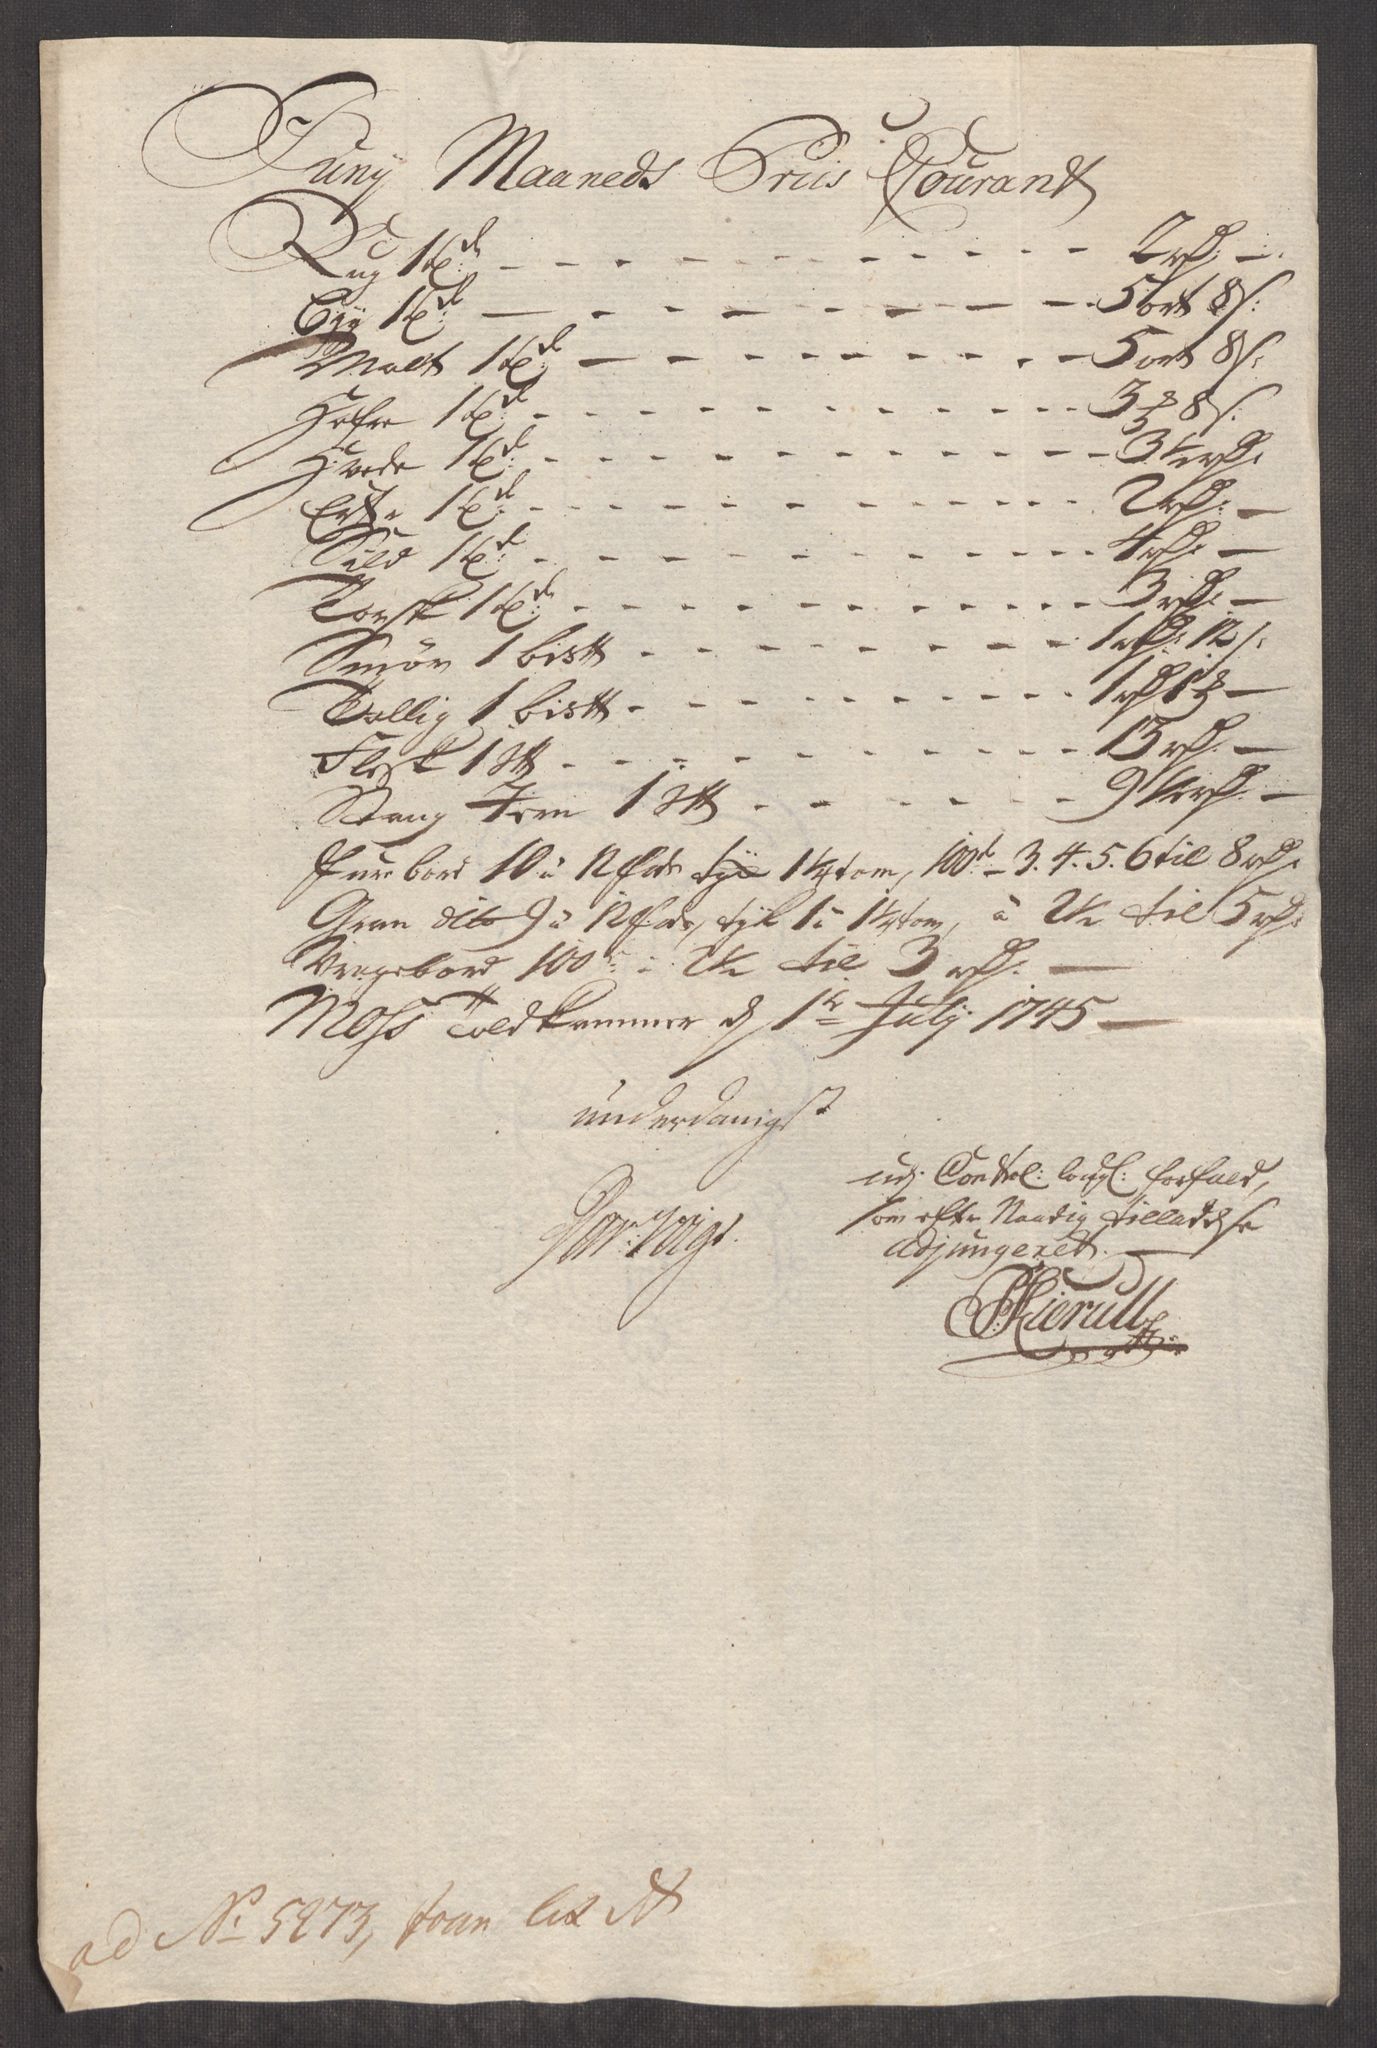 Junÿ Maaneds Priis Courant
Rug 1 td: - - - 2 rd: -
Bÿg 1 td: - - - 5 ort 8 s:
Malt 1 td: - - - 5 ort 8 s:
Hafre 1 td: - - - 3 8 s:
Hvede 1 td: - - - 3½ rd:
Erter 1 td: - - - 2 rd: -
Sild 1 td: - - - 4 rd: -
Torsk 1 td: - - - 3 rd: -
Smør 1 bistt - - - 1 rd: 12 s:
Tallig 1 bistt - - - 1 rd 1 -
Flesk 1 Stt - - - 13 rd: -
Stang Jern 1 Stt - - - 9½ rd: -
Furebord 10 à 12 fods tÿk 1¼ tom, 100d - 3. 4. 5. 6 til 8 rd:
Gran dito 9 à 12 fods, tÿk 1 à 1¼ tom, à 2½ til 5 rd:
Vragebord 100d: à 2½ til 3 rd: -
Moss Toldkammer d 1te Julÿ 1745 -
underdanigst
udj Control: forfald,
som efter Naadig tilladelse
adjungeret. -
Hierulff
ad No 5273, litt